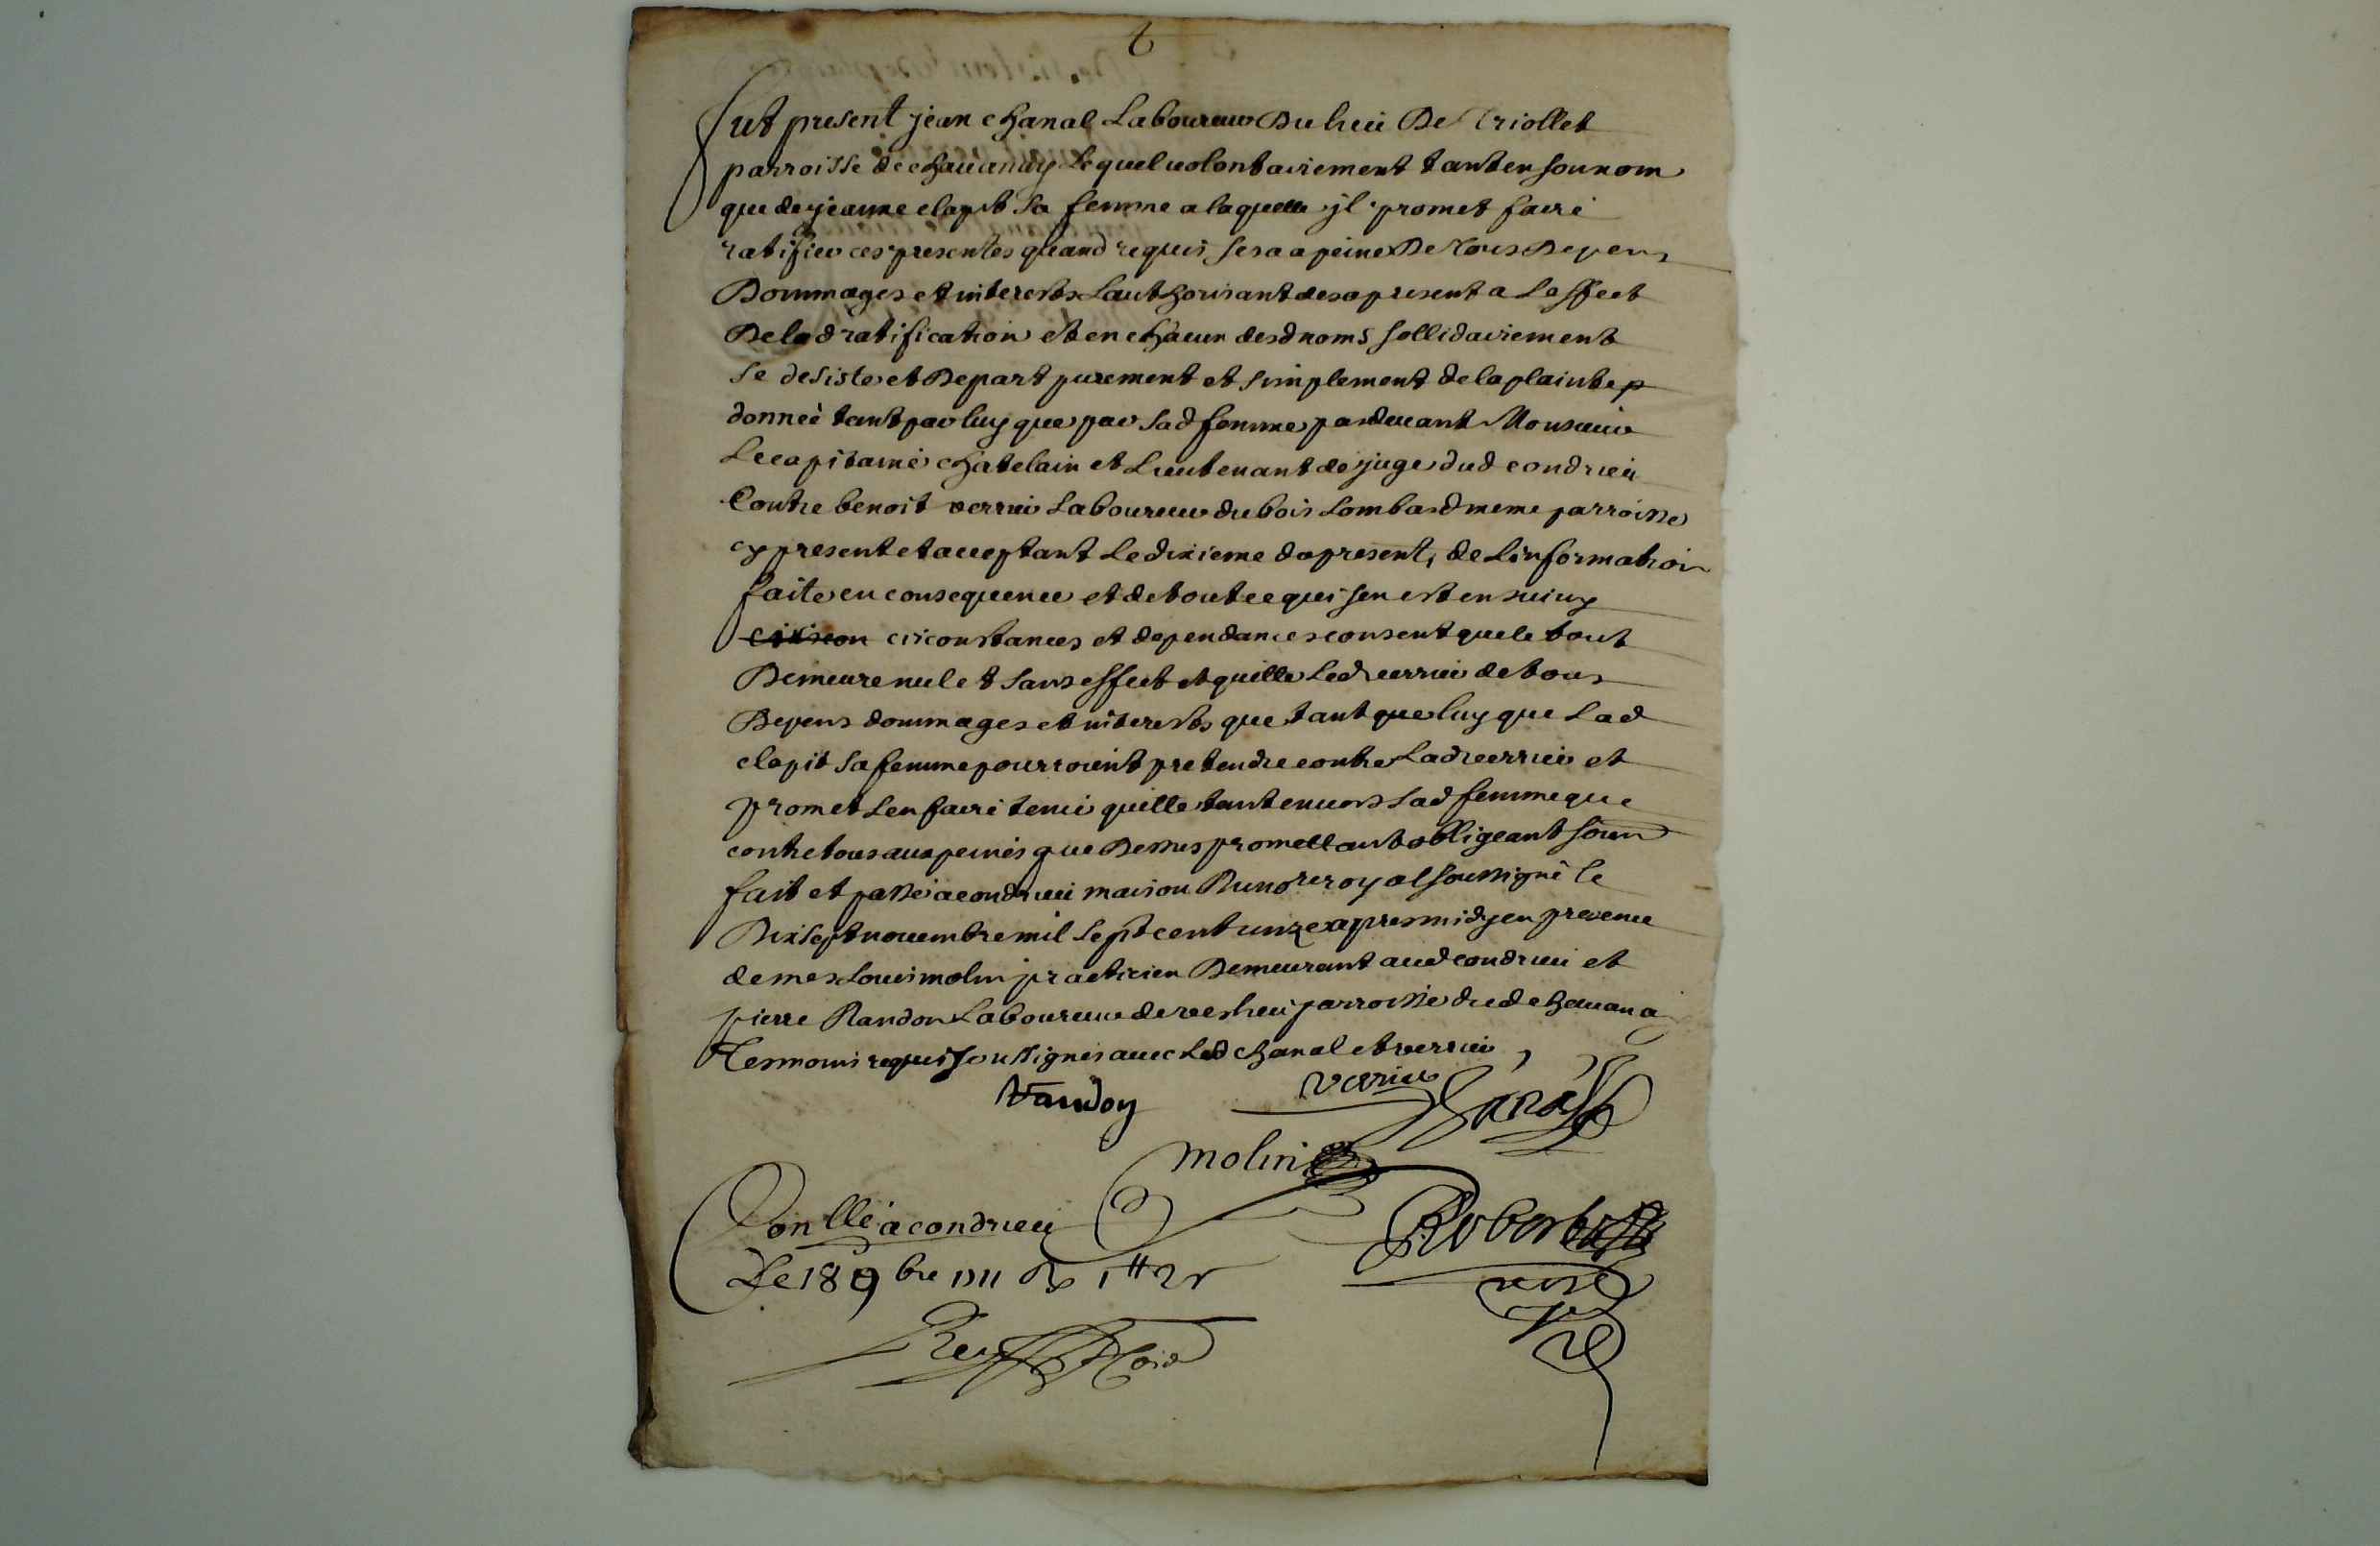 fut present jean chanal Laboureur Du lieu De Triollet
parroisse de chauanay Lequel uolontairement tant en son nom
que de jeanne clapit sa femme a laquelle jl promet faire
ratifier ces presentes quand requis sera a peine De Tous Depens
Dommages et interests Lauthorisant des a present a Leffect
De lad ratification et en chacun desd noms sollidairement
se desiste et Depart purement et simplement de la plainte p
donneè tant par luy que par sad femme parduant Monsieur
Le capitaine chatelain et Lieutenant de juge dud condrieu
Contre benoit verrier Laboureur du bois Lombard meme parroisse
cy present et acceptant Le dixieme du present, de Linformation
faite en consequence et de tout ce qui sen est ensuiuy
circon circonstances et dependances consent que le tout
Demeure nul et sans effect et quitte Led verrier de tous
Depens dommages et interests que tant que luy que Lad
clapit sa femme pourroient pretendre contre Lad verrier et
promet Len faire tenir quitte tant enuers sad femme que
contre tous aux peines que Dessus promettant obligeant soum
fait et passé a condrieu maison Du nore royal soussigné le
Dix sept nouembre mil sept cent unze apres midy en presence
de mes Louis molin practicien Demeurant aud condrieu et
pierre Randon Laboureur de verlieu parroisse dud chauana
Tesmoins requis soussignes auec Led chanal et verrier
Randon verrier Chanal
molin
Conllé a condrieu Robert
Le 18 9bre 1711 R 1tt 2s nore
Rey